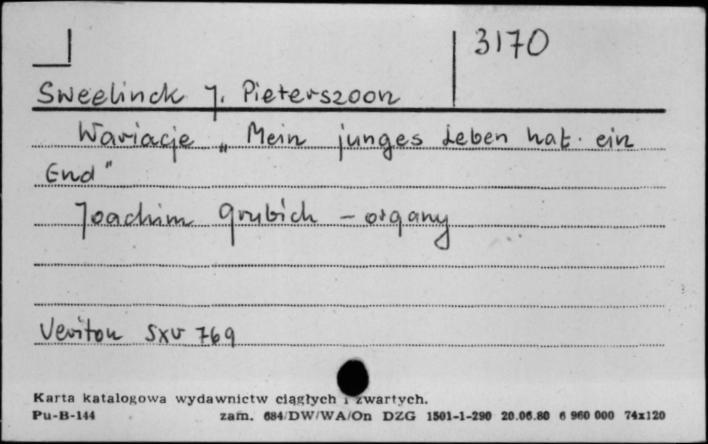 3170
Sweelinck J. Pieterszoon
Wariacje „Mein junges Leben hat ein
End"
Joachim Grubich - organy
Veriton SXV 769
Karta katalogowa wydawnictw ciągłych i zwartych.
Pu-B-144 zam. 684/DW/WA/On DZG 1501-1-290 20.06.80 6 960 000 74x120